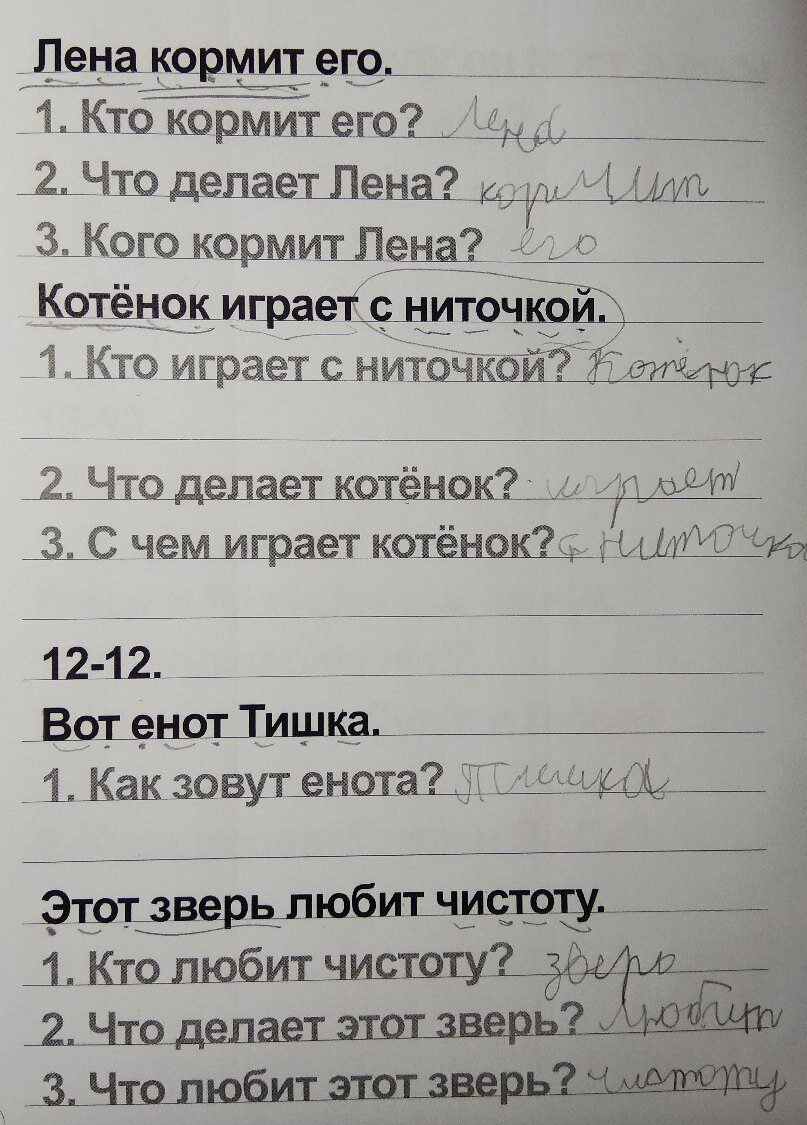 Лена кормит его.
1. Кто кормит его? Лена
2. Что делает Лена? кормит
3. Кого кормит Лена? его
Котёнок играет с ниточкой.
1. Кто играет с ниточкой? Котёнок
2. Что делает котёнок? играет
3. С чем играет котёнок? с ниточко
12-12.
Вот енот Тишка.
1. Как зовут енота? Тишка
Этот зверь любит чистоту.
1. Кто любит чистоту? зверь
2. Что делает этот зверь? любит
3. Что любит этот зверь? чистоту